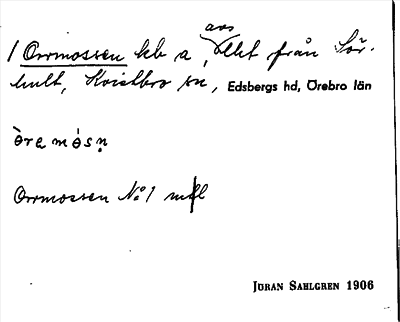 1 Orrmossen lkb a avs, Allt från Sör-
hult, Kvistbro sn, Edsbergs hd, Örebro län
òremósṇ
Orrmossen No 1 mtl
JÖRAN SAHLGREN 1906